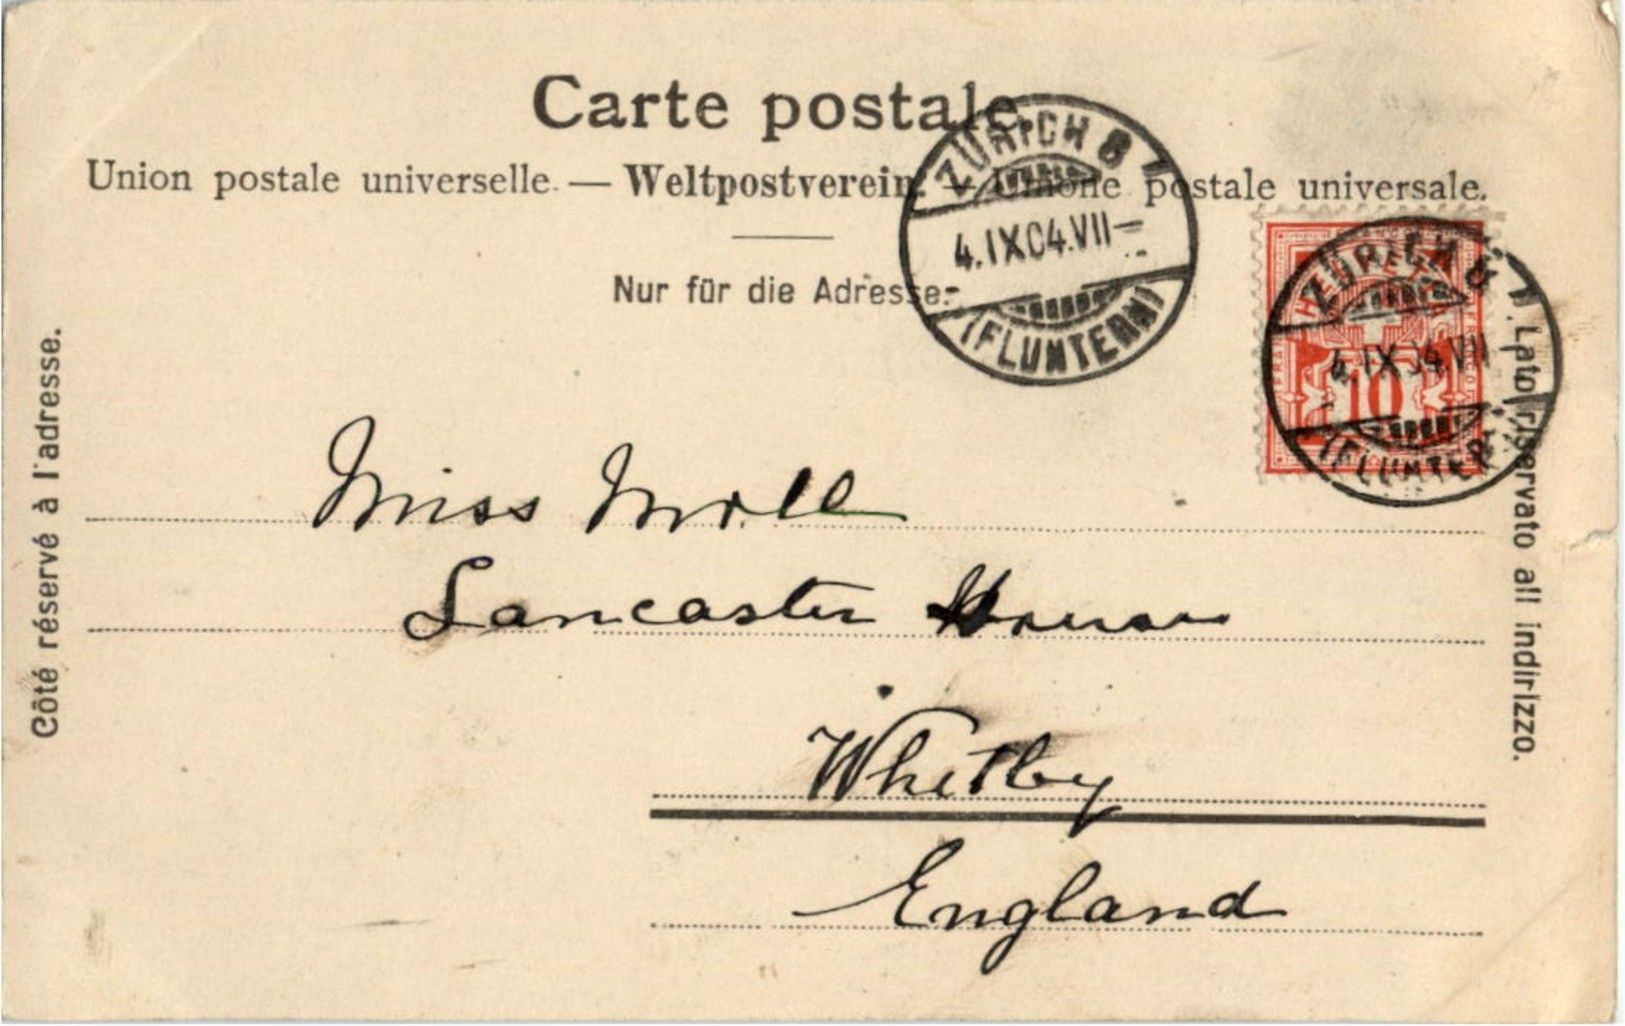 Carte postale.
Union postale universelle. — Weltpostverein. — Unione postale universale.
Nur für die Adresse.
ZÜRICH 8
4.IX.04.VII—
(FLUNTERN)
HELVETIA
10
ZÜRICH 8
4.IX.04.VII—
(FLUNTERN)
Côté réservé à l'adresse.
Lato riservato all indirizzo.
Miss Moll
Lancaster House
Whitby
England